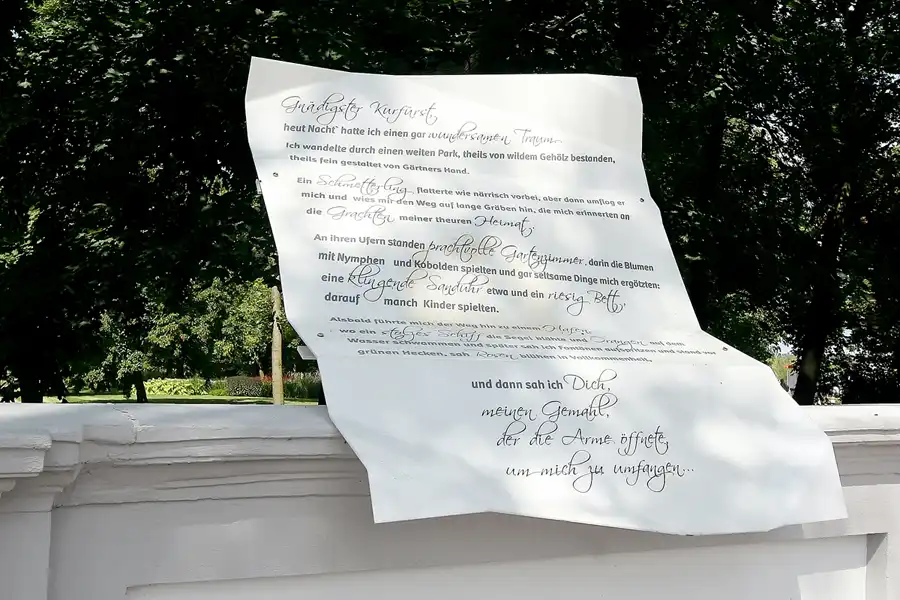 Gnädigster Kurfürst,
heut Nacht' hatte ich einen gar wundersamen Traum.
Ich wandelte durch einen weiten Park, theils von wildem Gehölz bestanden,
theils fein gestaltet von Gärtners Hand.
Ein Schmetterling flatterte wie närrisch vorbei, aber dann umflog er
mich und wies mir den Weg auf lange Gräben hin, die mich erinnerten an
die Grachten meiner theuren Heimat.
An ihren Ufern standen prachtvolle Gartenzimmer, darin die Blumen
mit Nymphen und Kobolden spielten und gar seltsame Dinge mich ergötzten:
eine klingende Sanduhr etwa und ein riesig Bett,
darauf manch Kinder spielten.
Alsbald führte mich der Weg hin zu einem Hafen,
wo ein stolzes Schiff die Segel blähte und Orangen auf dem
Wasser schwammen und später sah ich Fontänen aufspritzen und stand vor
grünen Hecken, sah Rosen blühen in Vollkommenheit,
und dann sah ich Dich,
meinen Gemahl,
der die Arme öffnete,
um mich zu umfangen...